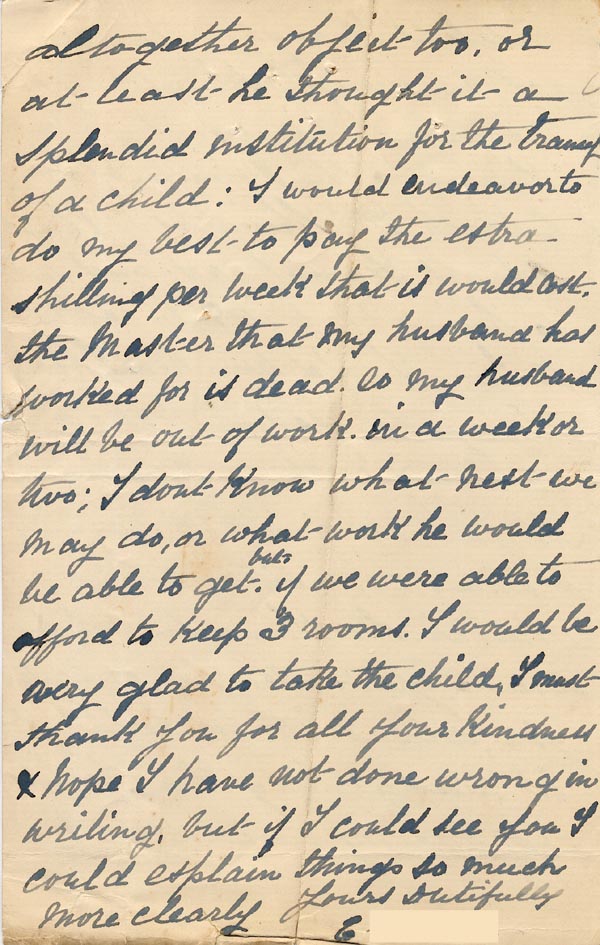 altogether object too, or
at least he thought it a
splendid institution for the traing
of a child: I would endeavor to
do my best to pay the extra
shilling per week that is would cost.
the Master that my husband has
worked for is dead. so my husband
will be out of work. in a week or
two; I dont know what next we
may do, or what work he would
be able to get. but if we were able to
afford to keep 3 rooms. I would be
very glad to take the child, I must
thank you for all your kindness
& hope I have not done wrong in
writing, but if I could see you I
could explain things so much
more clearly Yours dutifully
E